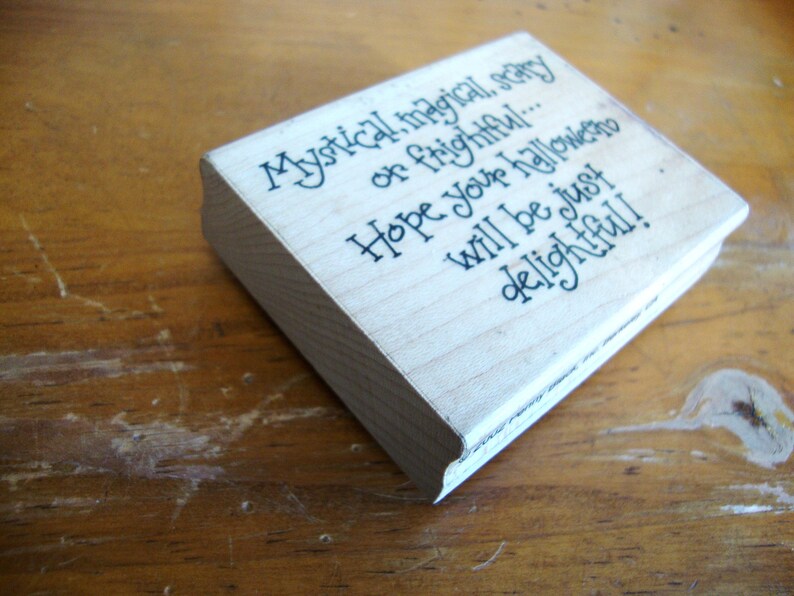 Mystical, magical, scary
or frightful...
Hope your halloween
will be just
delightful!
© 2002 Penny Black, Inc.